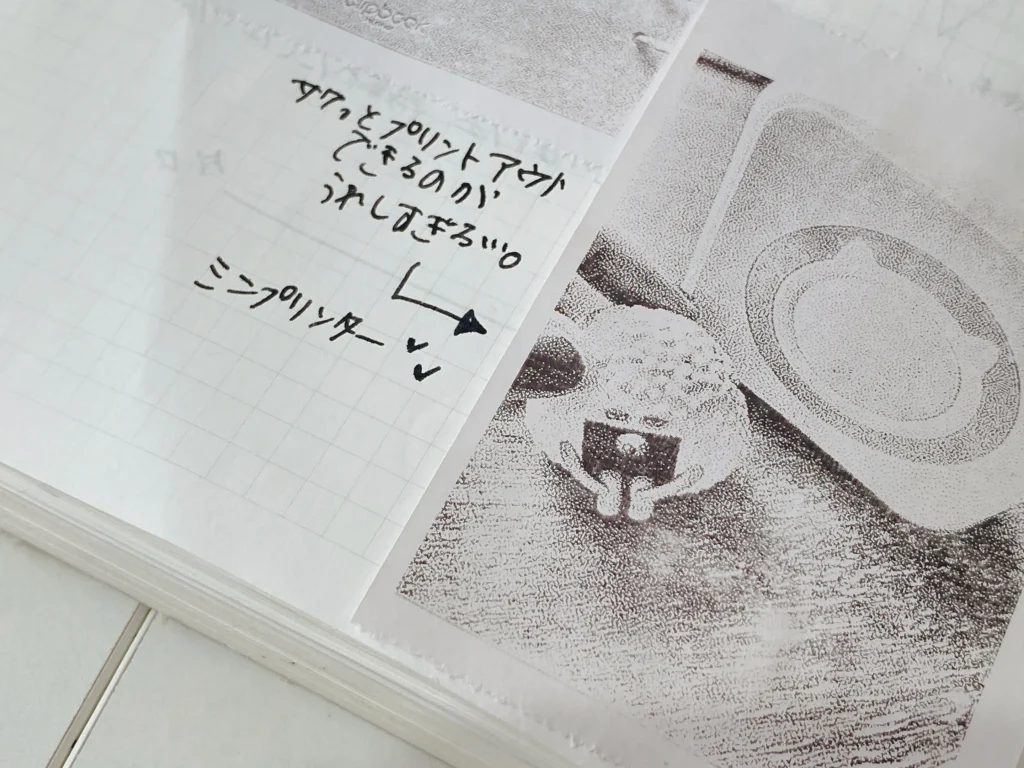 サクっとプリントアウト
できるのが
うれしすぎる…。
ミニプリンター